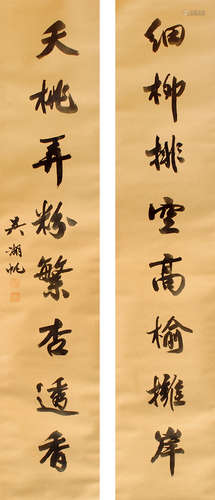 细柳排空高榆拥岸
夭桃弄粉繁杏透香
吴湖帆